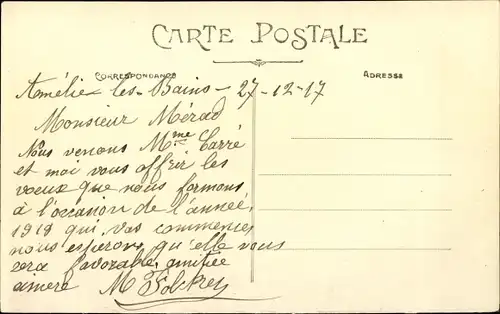 CARTE POSTALE
CORRESPONDANCE
ADRESSE
Amélie les-Bains - 27-12-17
Monsieur Mérad
Nous venons Mme Carré
et moi vous offrir les
voeux que nous formons
à l'occasion de l'année
1918 qui, vas commencer
nous esperons qu'elle vous
sera favorable, amitiée
sincère M